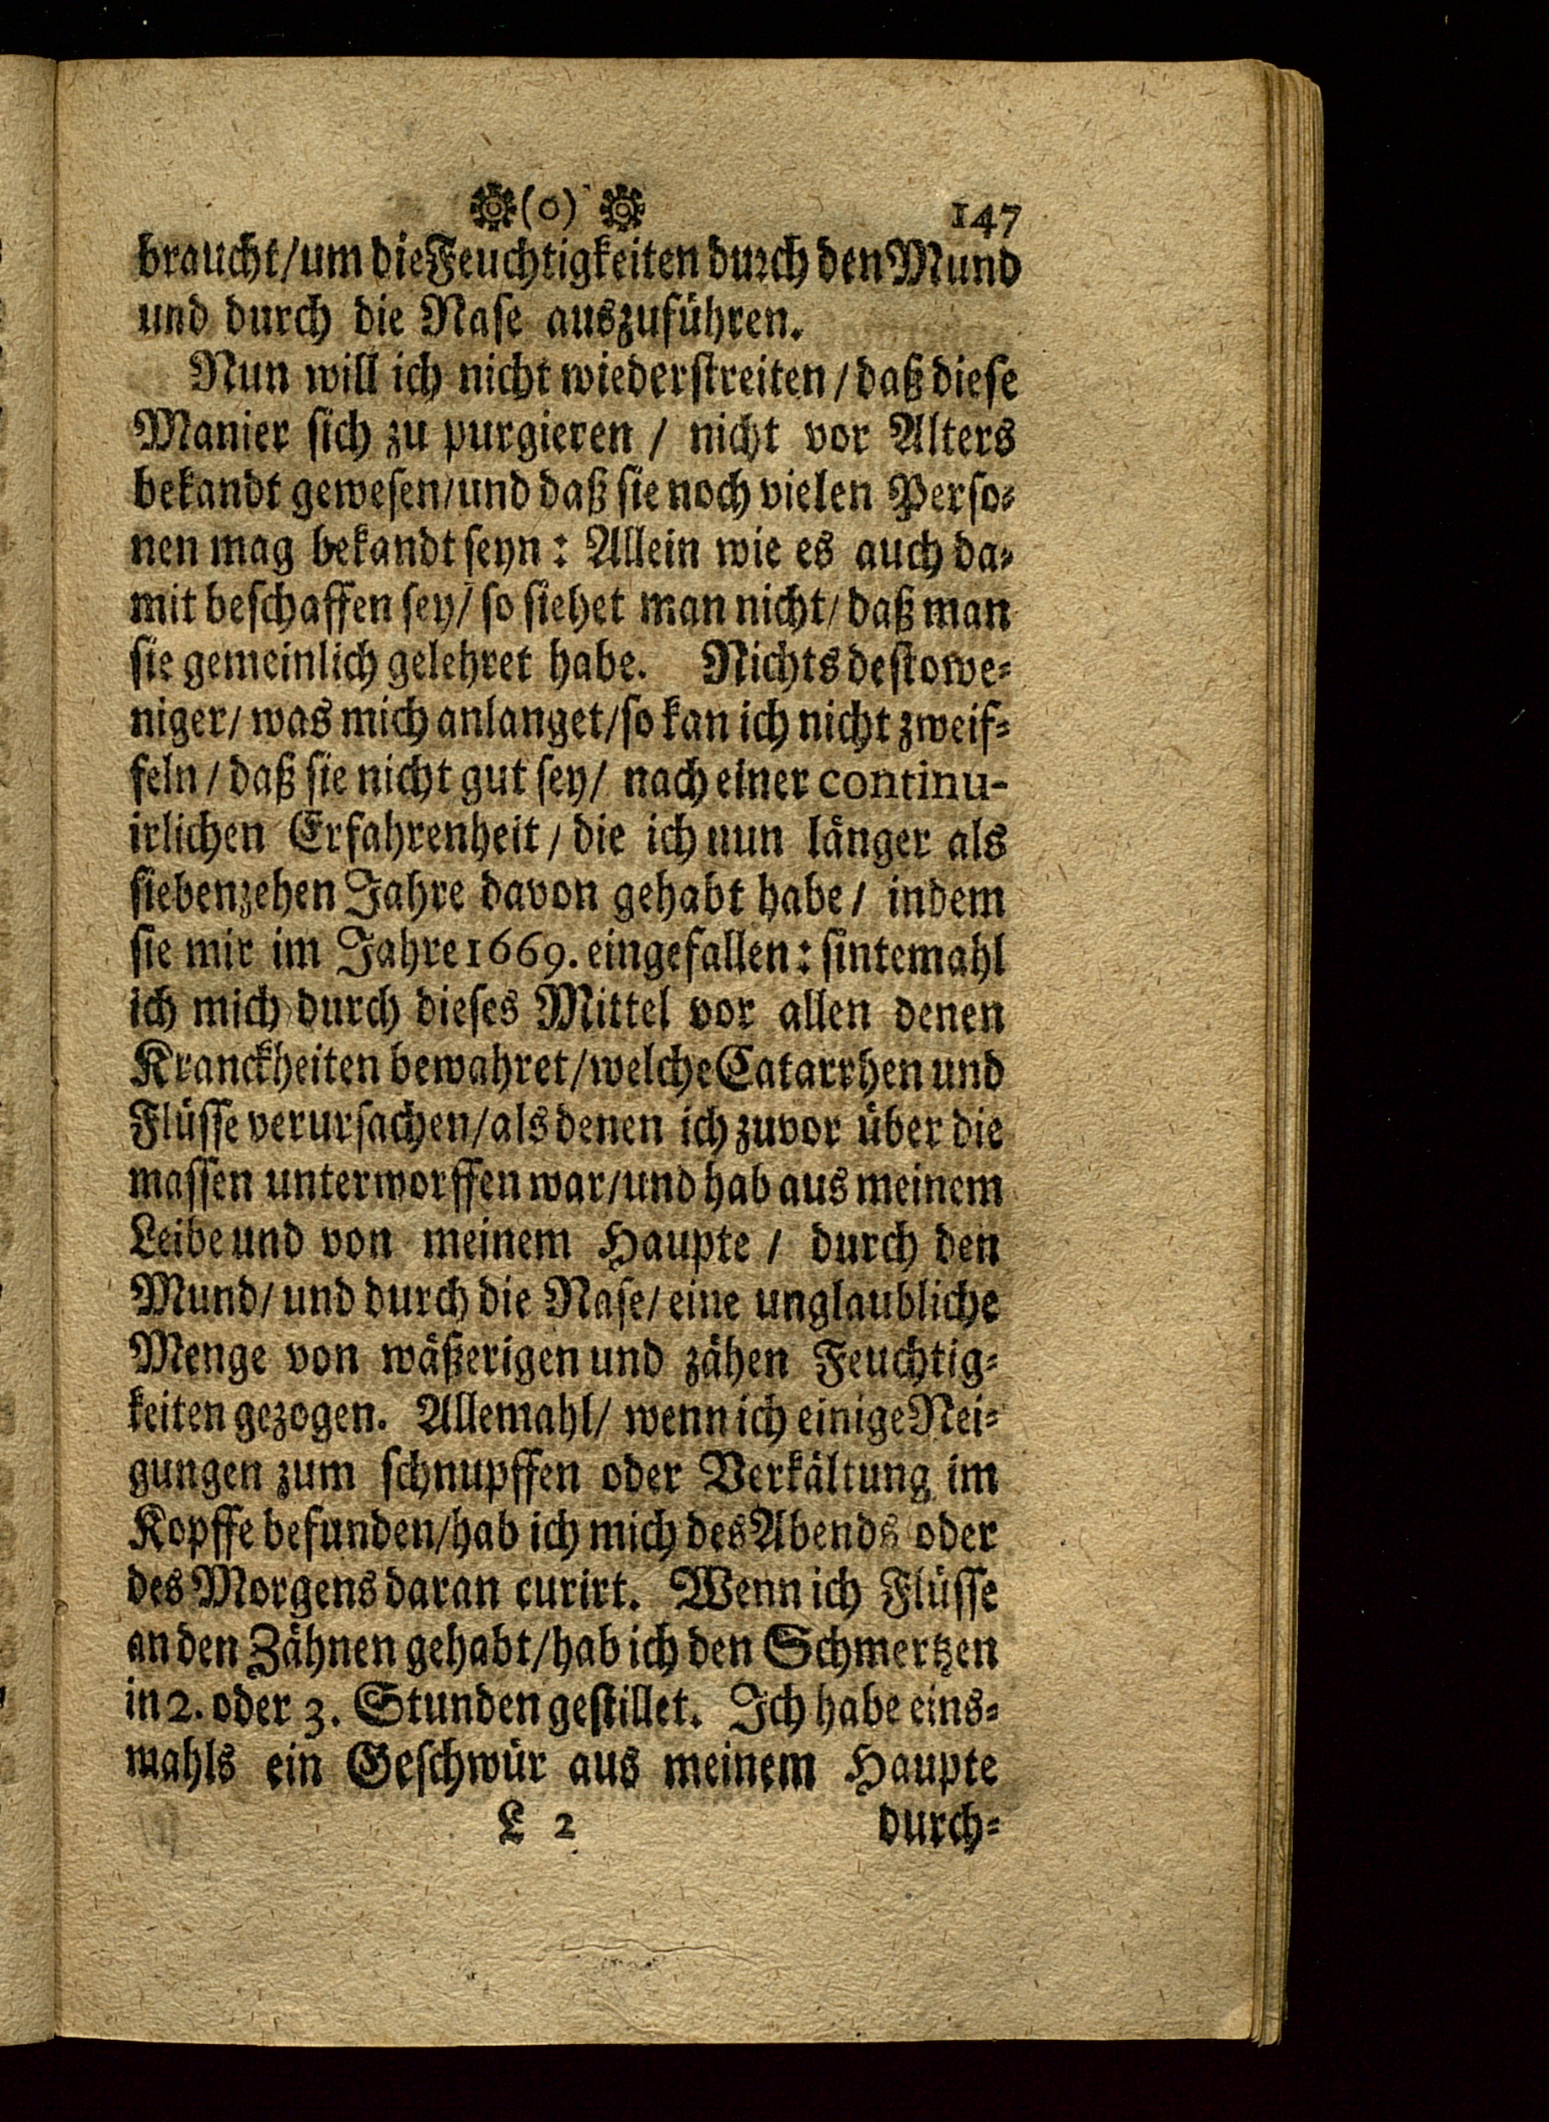 (0) 147
braucht/um die Feuchtigkeiten durch den Mund
und durch die Nase auszuführen.
Nun will ich nicht wiederstreiten/daß diese
Manier sich zu purgieren / nicht vor Alters
bekandt gewesen/und daß sie noch vielen Perso-
nen mag bekandt seyn: Allein wie es auch da-
mit beschaffen sey/ so siehet man nicht/daß man
sie gemeinlich gelehret habe. Nichts destowe-
niger/ was mich anlanget/so kan ich nicht zweif-
feln/daß sie nicht gut sey/ nach einer continu-
irlichen Erfahrenheit / die ich nun länger als
siebenzehen Jahre davon gehabt habe/ indem
sie mir im Jahre 1669. eingefallen: sintemahl
ich mich durch dieses Mittel vor allen denen
Kranckheiten bewahret/welche Catarrhen und
Flüsse verursachen/als denen ich zuvor über die
massen unterworffen war/und hab aus meinem
Leibe und von meinem Haupte / durch den
Mund/ und durch die Nase/ eine unglaubliche
Menge von wäßerigen und zähen Feuchtig-
keiten gezogen. Allemahl/ wenn ich einige Nei-
gungen zum schnupffen oder Verkältung im
Kopffe befunden/hab ich mich des Abends oder
des Morgens daran curirt. Wenn ich Flüsse
an den Zähnen gehabt/hab ich den Schmertzen
in 2. oder 3. Stunden gestillet. Ich habe eins-
mahls ein Geschwür aus meinem Haupte
L 2 durch-